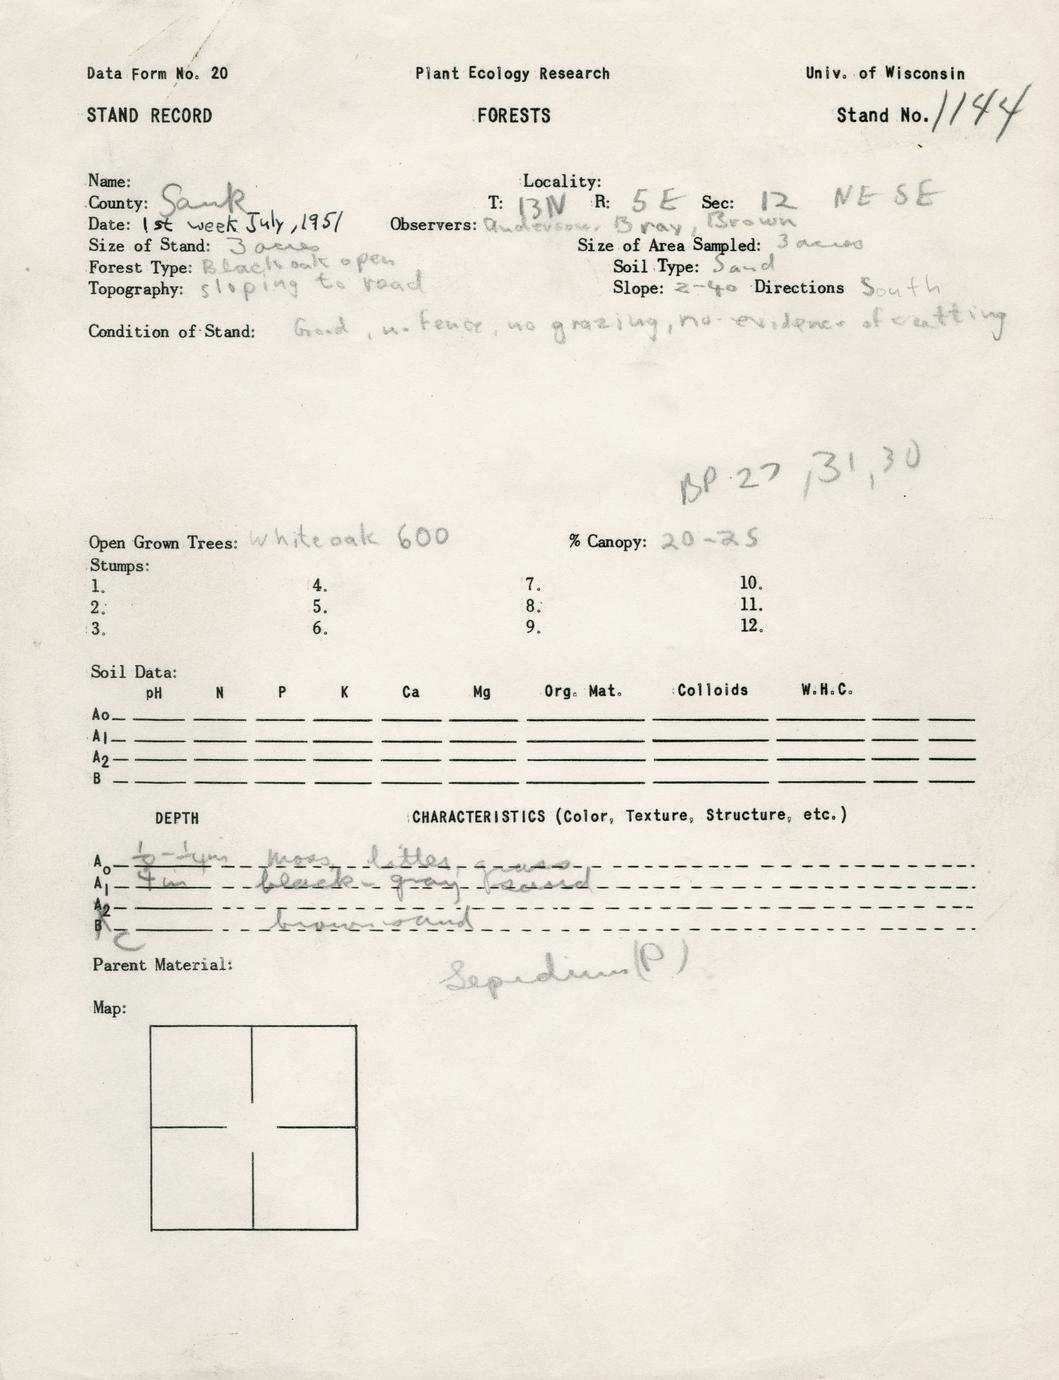 Data Form No. 20 Plant Ecology Research Univ. of Wisconsin
STAND RECORD FORESTS Stand No. 1144
Name: Locality:
County: Sauk T: 13N R: 5E Sec: 12 NE SE
Date: 1st week July, 1951 Observers: Anderson, Bray, Brown
Size of Stand: 3 acres Size of Area Sampled: 3 acres
Forest Type: Black oak open Soil Type: Sand
Topography: sloping to road Slope: 2-40 Directions South
Condition of Stand: Good, no fence, no grazing, no evidence of cutting
BP 27, 31, 30
Open Grown Trees: white oak 600 % Canopy: 20-25
Stumps:
1. 4. 7. 10.
2. 5. 8. 11.
3. 6. 9. 12.
Soil Data:
pH N P K Ca Mg Org. Mat. Colloids W.H.C.
Ao
A1
A2
B
DEPTH CHARACTERISTICS (Color, Texture, Structure, etc.)
Ao moss, litter, grass
A1 4 in black-gray sand
A2
B C brown sand
Parent Material:
(P)
Map: